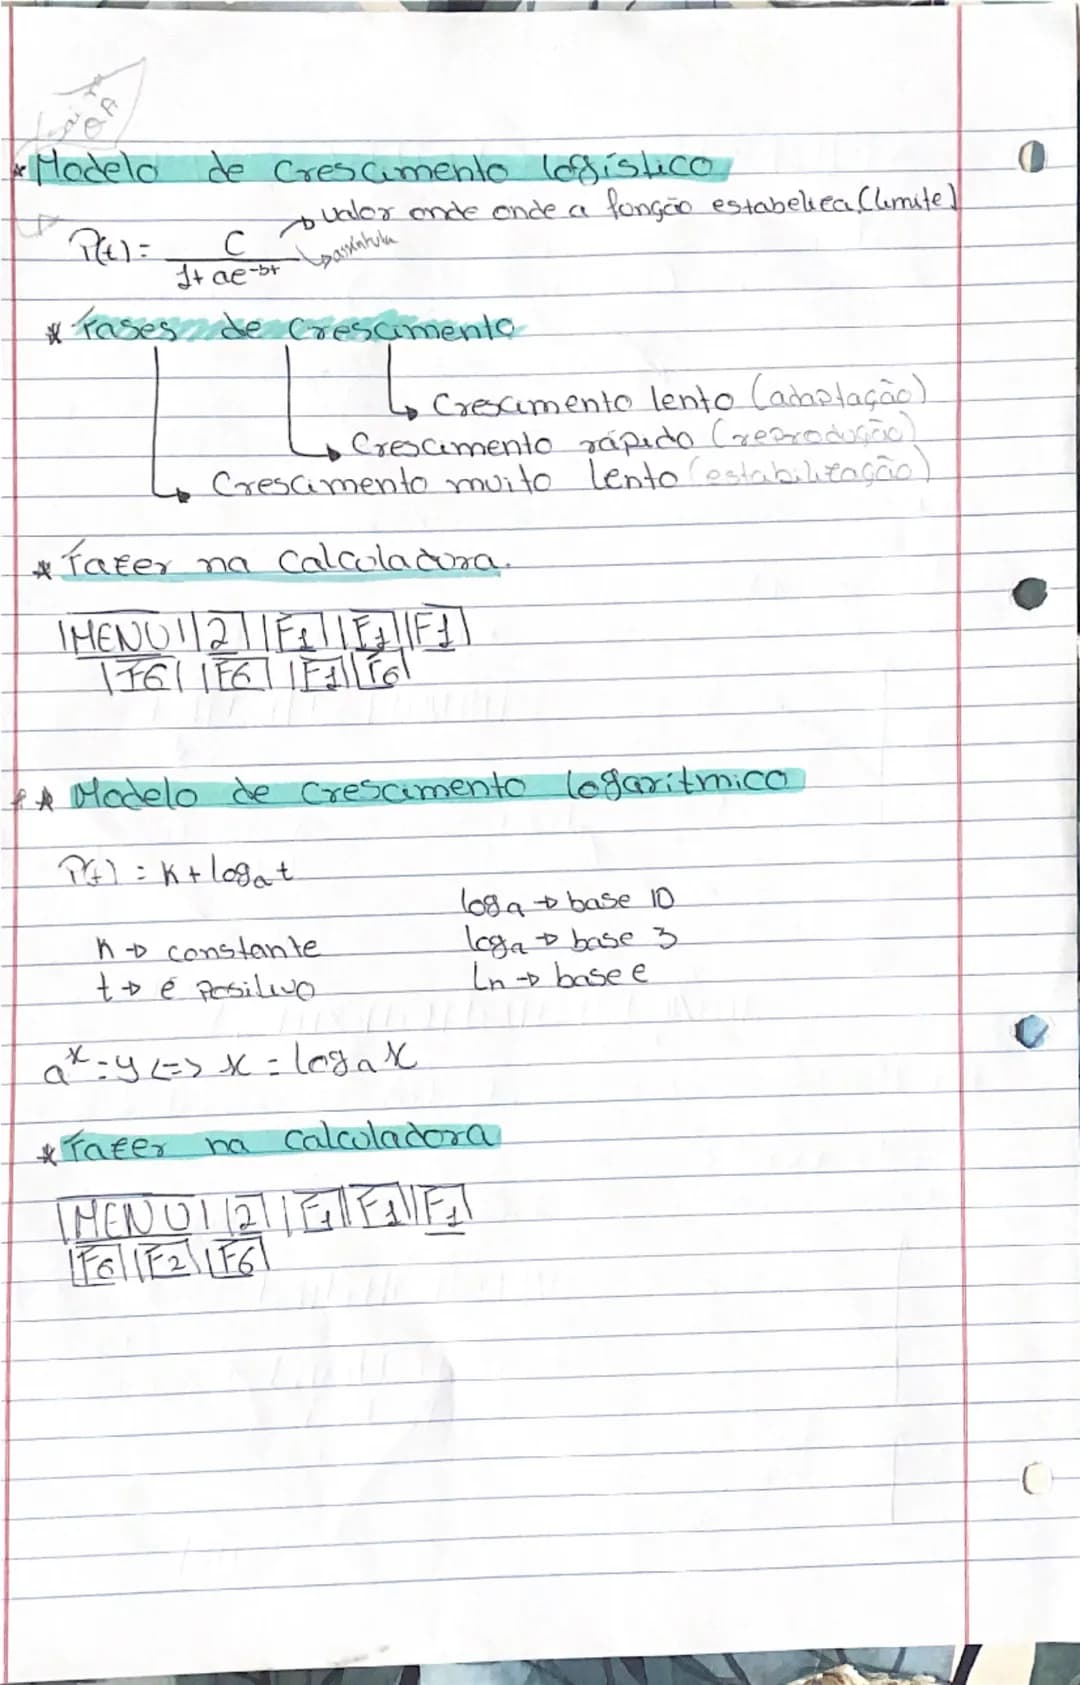 * Modelo de Crescimento logístico
valor onde onde a função estabeliza (limite)
P(t) = C / 1 + ae^-bt
assíntota
* Fases de Crescimento
Crescimento lento (adaptação)
Crescimento rápido (reprodução)
Crescimento muito lento (estabilização)
* Fazer na Calculadora.
|MENU| |2| |F1| |F1| |F1|
|F6| |F6| |F1| |F6|
* Modelo de Crescimento logaritmico
P(t) = K + logₐt
logₐ → base 10
K → constante
logₐ → base 3
t → é positivo
Ln → base e
a^x = y <=> x = logₐx
* Fazer na Calculadora
|MENU| |2| |F1| |F1| |F1|
|F6| |F2| |F6|